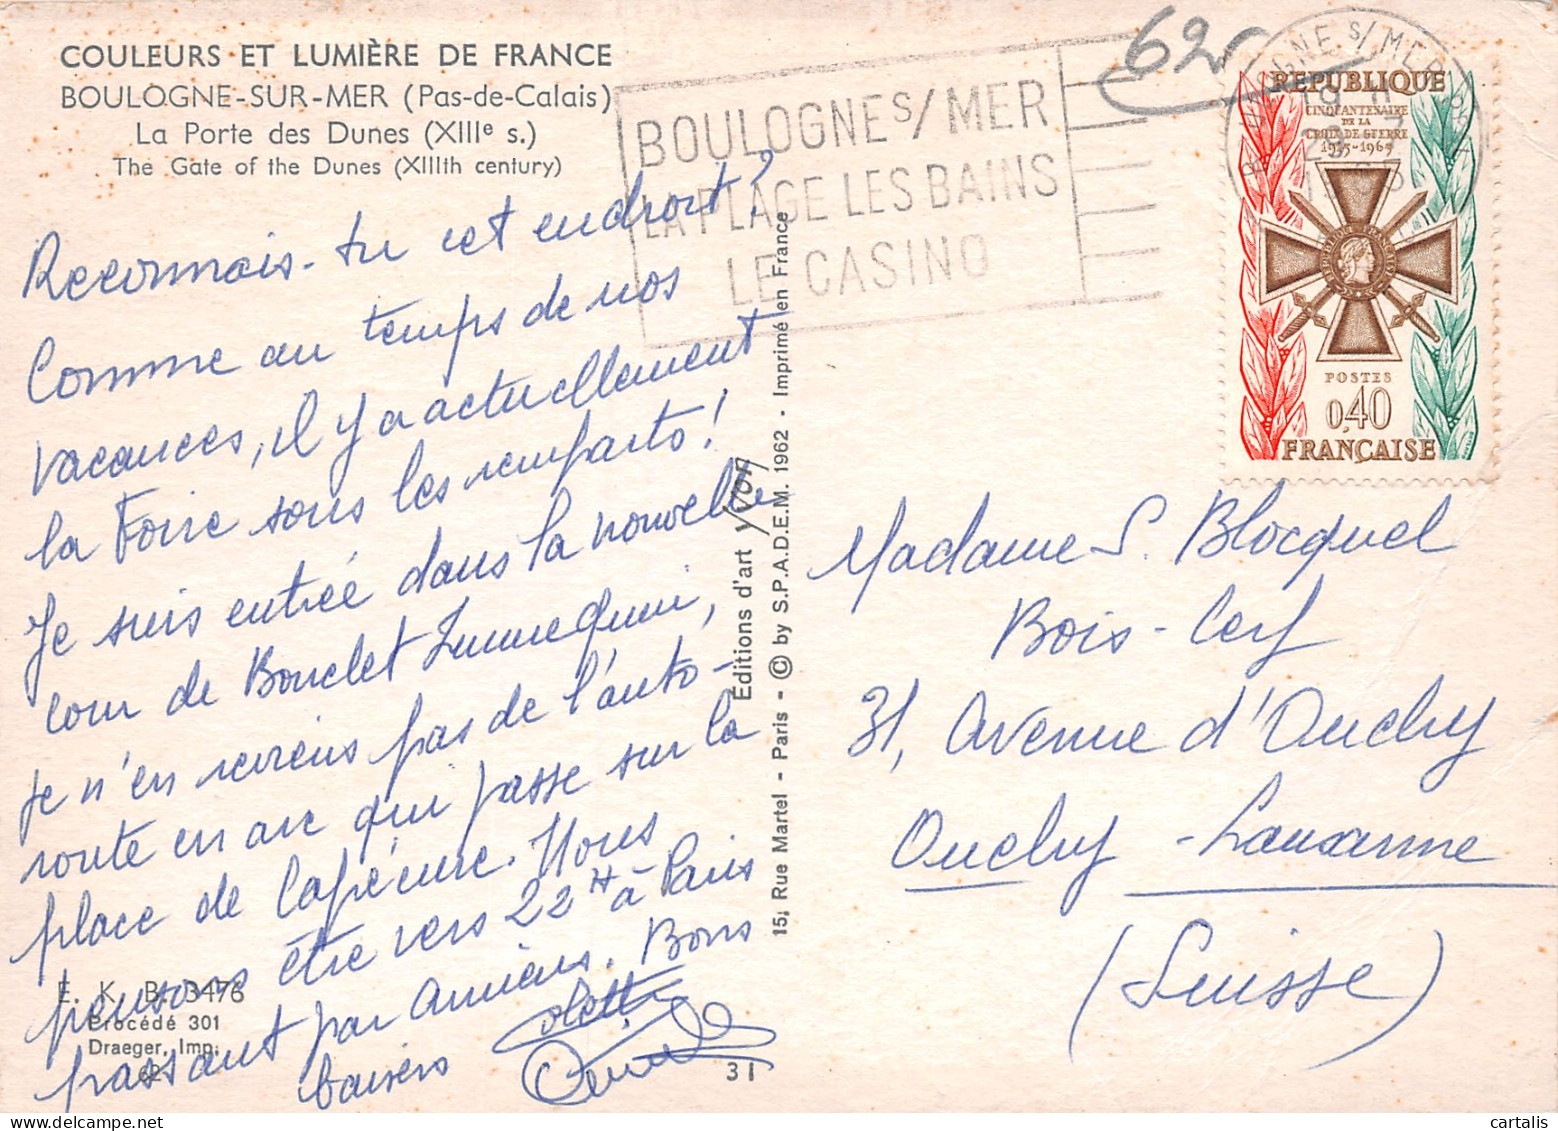 COULEURS ET LUMIÈRE DE FRANCE
BOULOGNE-SUR-MER (Pas-de-Calais)
La Porte des Dunes (XIIIe s.)
The Gate of the Dunes (XIIIth century)
Reconnais-tu cet endroit?
Comme au temps de nos
vacances, il y a actuellement
la Foire sous les remparts!
Je suis entrée dans la nouvelle
cour de
je n'en reviens pas de l'auto-
route en arc qui passe sur la
place de Capécure. Nous
pensons être vers 22H à Paris
passant par Amiens. Bons
baisers
E. K. B. 3476
Procédé 301
Draeger, Imp.
62
31
Editions d'art YVON
15, Rue Martel - Paris - © by S.P.A.D.E.M. 1962 - Imprimé en France
BOULOGNE S/MER
LA PLAGE LES BAINS
LE CASINO
62
REPUBLIQUE
CINQUANTENAIRE
DE LA
CROIX DE GUERRE
1915-1965
POSTES
0,40
FRANÇAISE
Madame S. Blocquel
Bois-Cerf
31, Avenue d'Ouchy
Ouchy - Lausanne
(Suisse)
cartalis